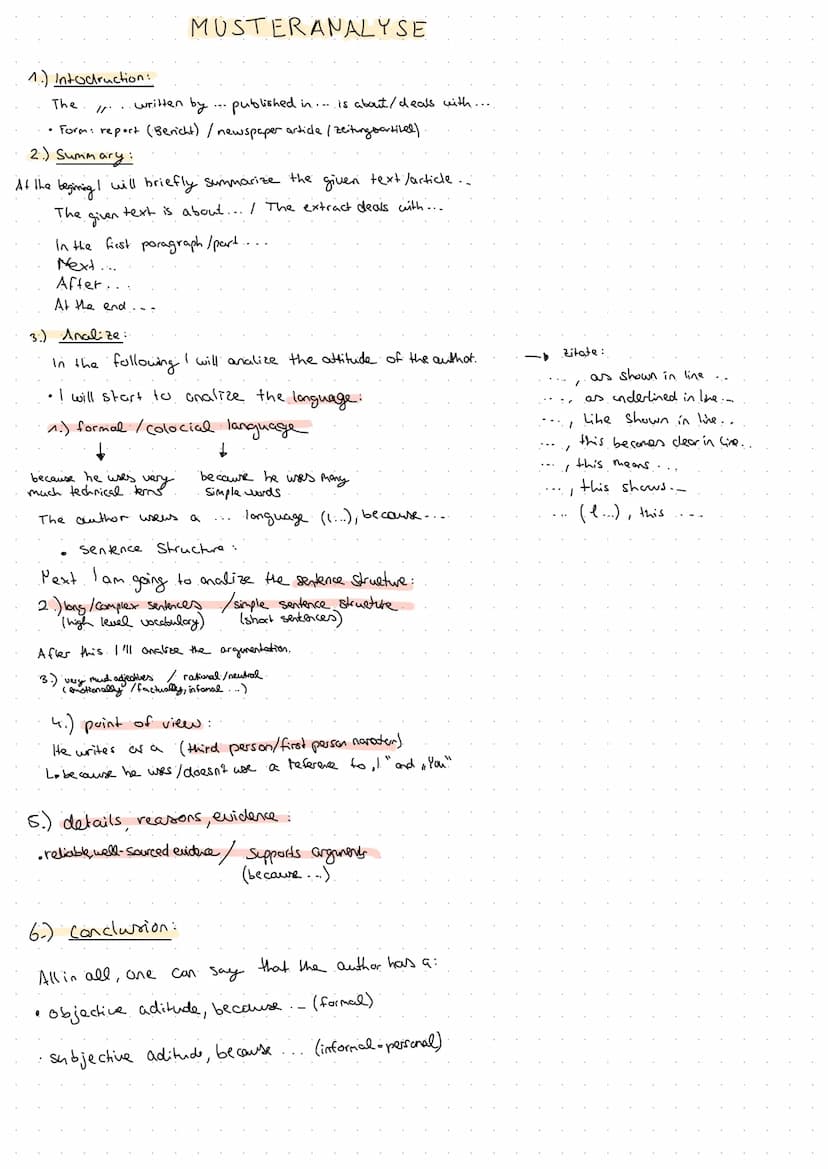 MUSTERANALYSE
1.) Intodruction:
The ,,.. written by ... published in ... is about/deals with...
• Form: report (Bericht) / newspaper article (Zeitungsartikel)
2.) Summary:
At the begining I will briefly summarize the given text/article ...
The given text is about... / The extract deals with...
In the first paragraph/part ...
Next ...
After ...
At the end ...
3.) Analize:
In the following I will analize the attitude of the author.
• I will start to analize the language:
1.) formal / colocial language
because he uses very because he uses many
much technical terms simple words
The author useus a ... language (l...), because...
• Sentence Structure:
Next I am going to analize the sentence structure:
2.) long/complex sentences / simple sentence structure
(high level vocabulary) (short sentences)
After this I'll analize the argumentation.
3.) very much adjectives / rational/neutral
(emotionally / factually, informal ...)
4.) point of view:
He writes as a (third person/first person narrator)
↳ because he uses/doesn't use a reference to „I" and „You"
5.) details, reasons, evidence:
• reliable, well-sourced evidence / supports arguments
(because ...)
6.) Conclusion:
All in all, one can say that the author has a:
• objective aditude, because ... (formal)
• subjective aditude, because ... (informal = personal)
→ Zitate:
..., as shown in line ..
..., as underlined in line ...
..., like shown in line..
..., this becomes clear in line..
..., this means ...
..., this shows...
... (l...), this ....